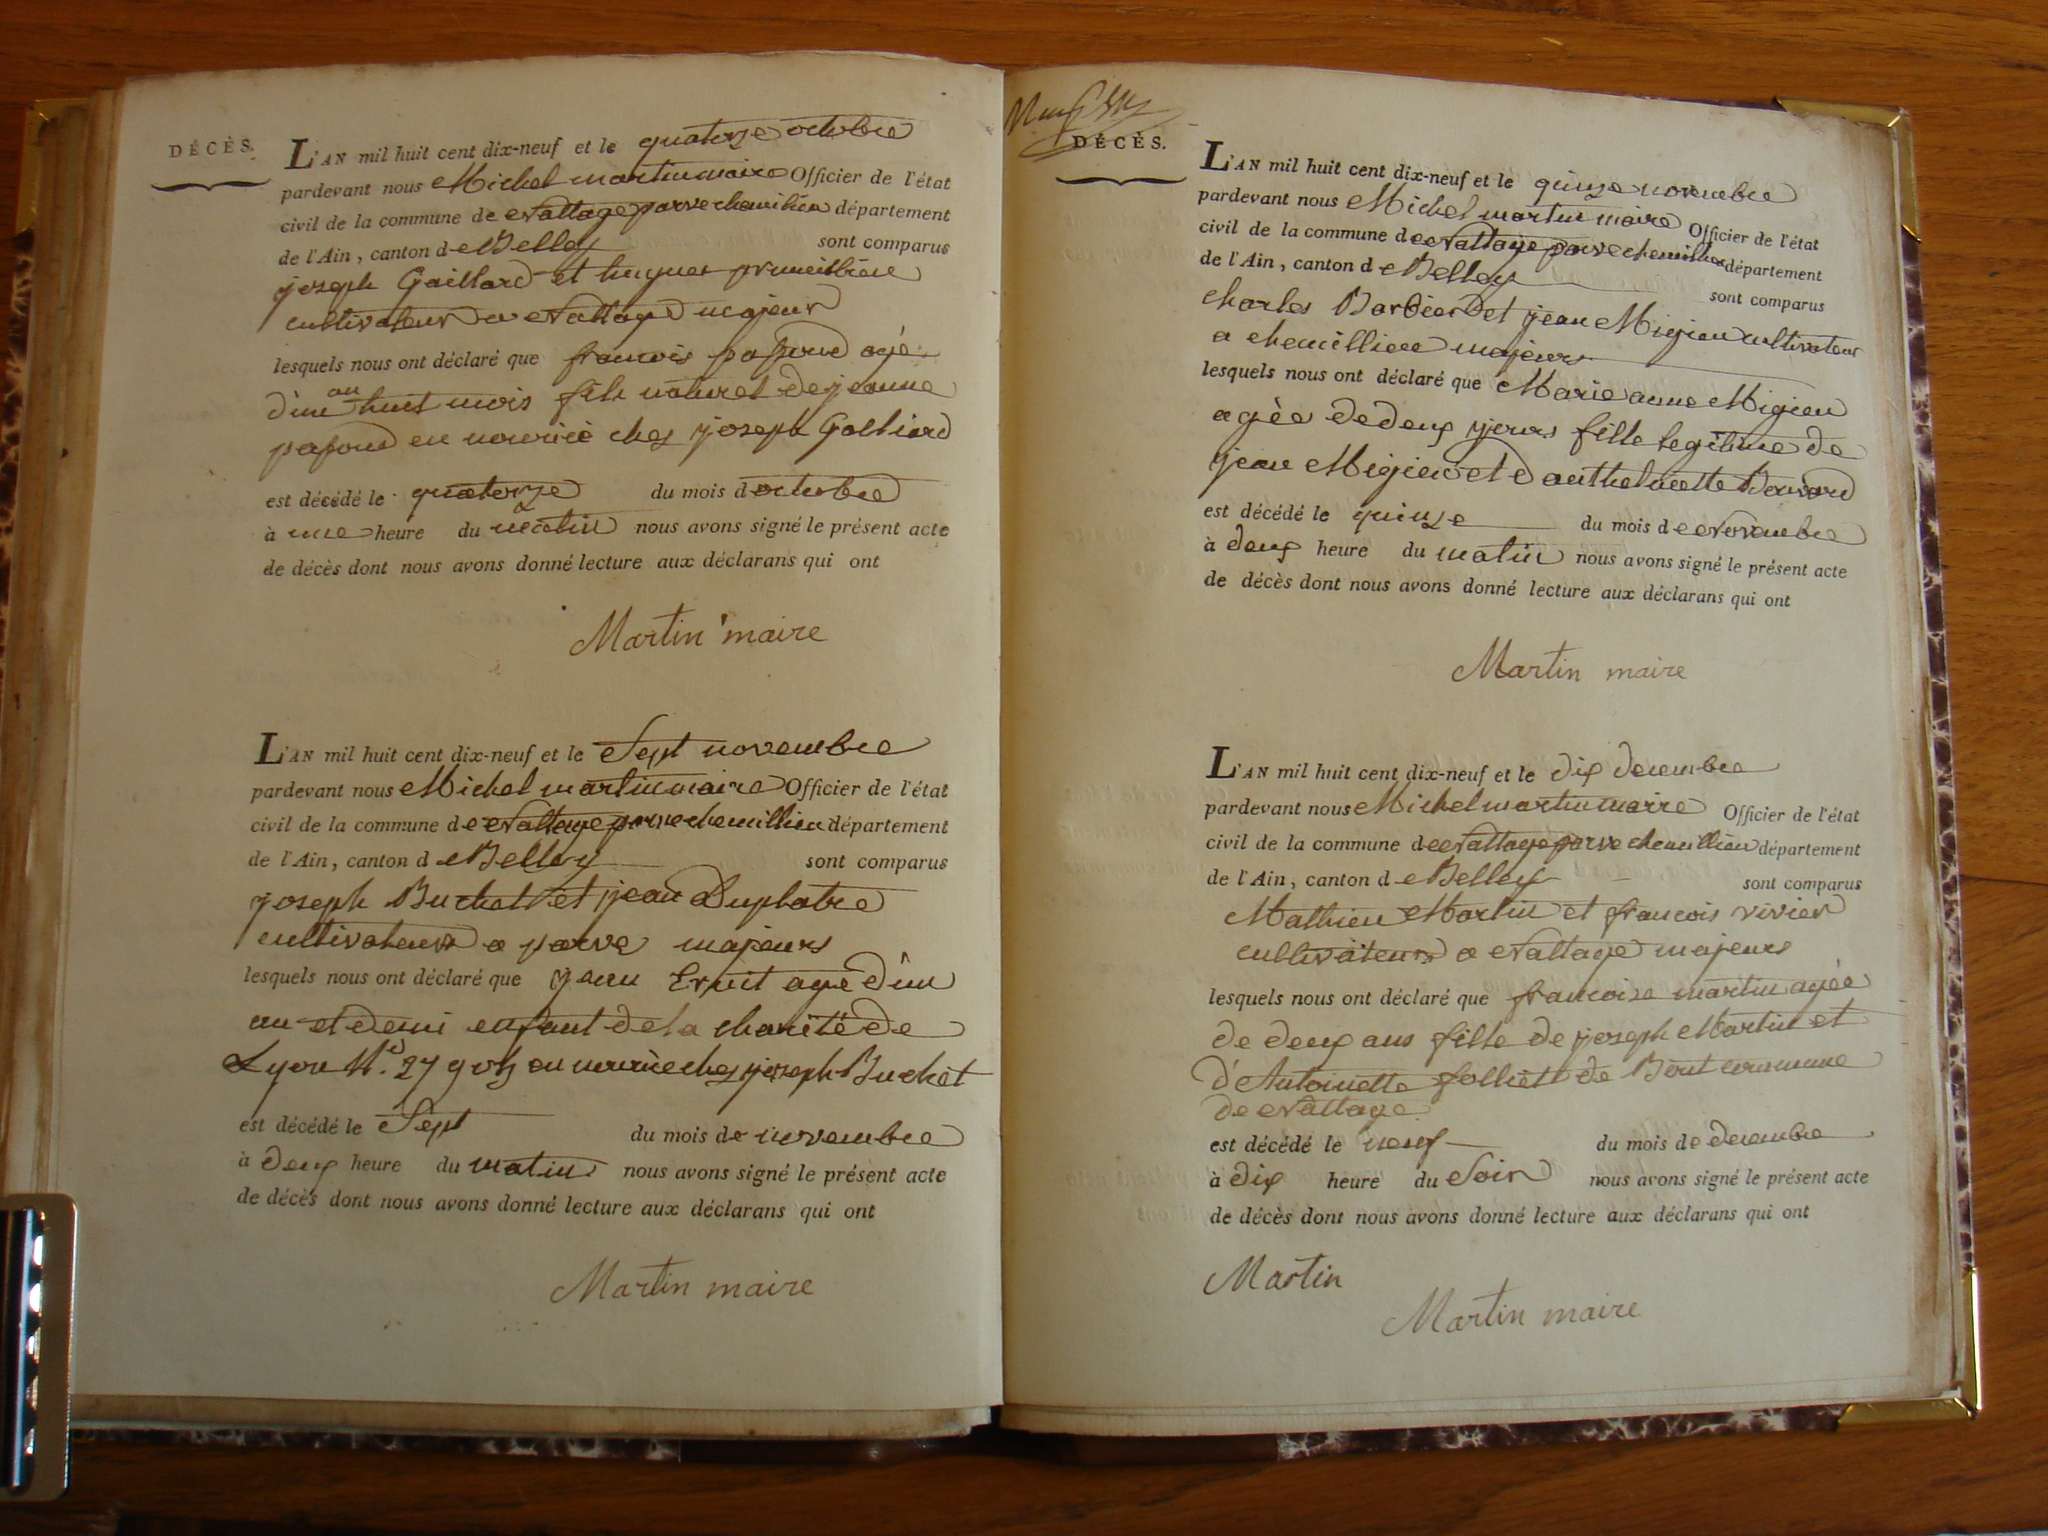 DÉCÈS.
L'AN mil huit cent dix-neuf et le quatorze octobre
pardevant nous Michel martin maire Officier de l'état
civil de la commune de Nattage parve chemillieu département
de l'Ain, canton de Belley sont comparus
joseph Gaillard et hugues
cultivateur a Nattage majeur
lesquels nous ont déclaré que francois pafond agé
d'un an huit mois fils naturel de jeanne
pafond en nourice ches joseph Galliard
est décédé le quatorze du mois d octobre
à une heure du matin nous avons signé le présent acte
de décès dont nous avons donné lecture aux déclarans qui ont
Martin maire
L'AN mil huit cent dix-neuf et le Sept novembre
pardevant nous Michel martin maire Officier de l'état
civil de la commune de Nattage parve chemillieu département
de l'Ain, canton de Belley sont comparus
joseph Buchet et jean Duplatre
cultivateurs a parve majeurs
lesquels nous ont déclaré que jean agé d'un
an et demi enfant de la charité de
Lyon N.º 27 en nourice ches joseph Buchet
est décédé le Sept du mois de novembre
à deux heure du matin nous avons signé le présent acte
de décès dont nous avons donné lecture aux déclarans qui ont
Martin maire
DÉCÈS.
L'AN mil huit cent dix-neuf et le quinze novembre
pardevant nous Michel martin maire Officier de l'état
civil de la commune de Nattage parve chemillieu département
de l'Ain, canton de Belley sont comparus
charles Barbier et jean Migieu cultivateur
a chemillieu majeurs
lesquels nous ont déclaré que Marie anne Migieu
agée de deux jours fille legitime de
jean Migieu et d anthelmette
est décédé le quinze du mois de Novembre
à deux heure du matin nous avons signé le présent acte
de décès dont nous avons donné lecture aux déclarans qui ont
Martin maire
L'AN mil huit cent dix-neuf et le dix decembre
pardevant nous Michel martin maire Officier de l'état
civil de la commune de Nattage parve chemillieu département
de l'Ain, canton de Belley sont comparus
Mathieu Martin et francois vivier
cultivateurs a Nattage majeurs
lesquels nous ont déclaré que francoise martin agée
de deux ans fille de joseph Martin et
d'Antoinette folliet de commune
de Nattage
est décédé le neuf du mois de decembre
à dix heure du Soir nous avons signé le présent acte
de décès dont nous avons donné lecture aux déclarans qui ont
Martin
Martin maire